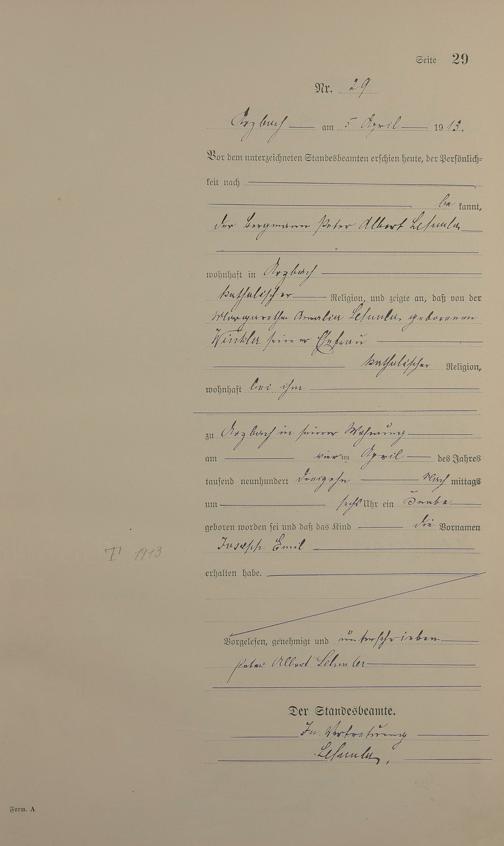 Seite 29
Nr. 29
Arzbach am 5 April 1913.
Vor dem unterzeichneten Standesbeamten erschien heute, der Persönlich=
keit nach
be kannt,
der Bergmann Peter Albert
wohnhaft in Arzbach
katholischer Religion, und zeigte an, daß von der
Margaretha Amalia geborenen
Winkler seiner Ehefrau
katholischer Religion,
wohnhaft bei ihm
zu Arzbach in seiner Wohnung
am vier ten April des Jahres
tausend neunhundert dreizehn Nach mittags
um sechs Uhr ein Knabe
geboren worden sei und daß das Kind die Vornamen
Joseph Emil
erhalten habe.
1913
Vorgelesen, genehmigt und unterschrieben
Peter Albert
Der Standesbeamte.
In Vertretung
Form. A